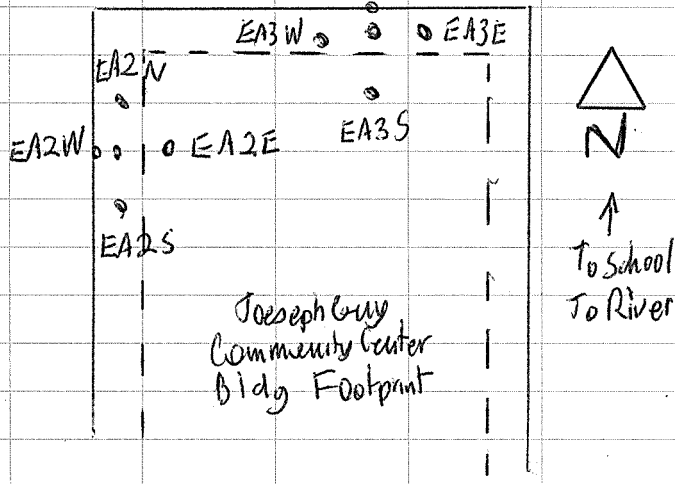 EA3W EA3E
EA2N
EA3S
EA2W EA2E
N
EA2S
To School
To River
Joeseph Guy
Community Center
Bldg Footprint